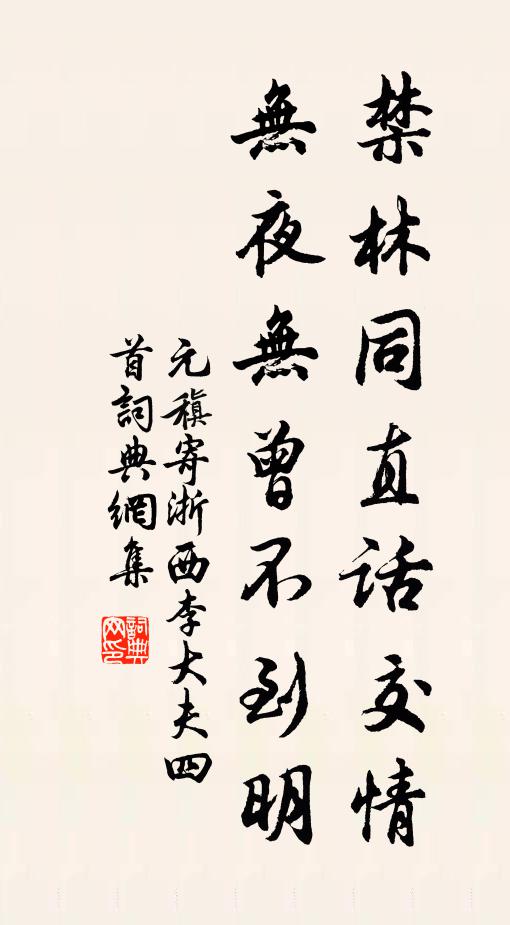 禁林同直話交情
無夜無曾不到明
元稹寄浙西李大夫四
首詞典網集
詞典
网印